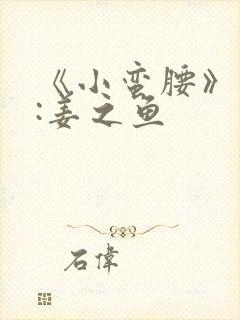 《小蛮腰》
:姜之鱼
石偉